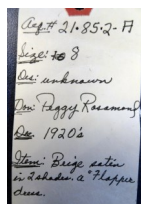 Acq.# 21.85.2-A
Size: 8
Des: unknown
Don: Peggy Rosamond
Da: 1920's
Item: Beige satin
in 2 shades. a "Flapper
dress.